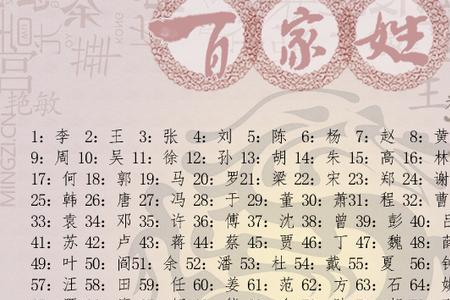 百家姓
MINGZI.CN
艳敏
王
1: 李 2: 王 3: 张 4: 刘 5: 陈 6: 杨 7: 赵 8: 黄
9: 周 10: 吴 11: 徐 12: 孙 13: 胡 14: 朱 15: 高 16: 林
17: 何 18: 郭 19: 马 20: 罗21: 梁 22: 宋 23: 郑 24: 谢
25: 韩 26: 唐 27: 冯 28: 于 29: 董 30: 萧31: 程 32: 曹
33: 袁 34: 邓 35: 许 36: 傅 37: 沈 38: 曾 39: 彭 40: 吕
41: 苏 42: 卢 43: 蒋 44: 蔡 45: 贾 46: 丁 47: 魏 48: 薛
49: 叶 50: 阎51: 余 52: 潘 53: 杜 54: 戴 55: 夏 56: 钟
57: 汪 58: 田 59: 任 60: 姜 61: 范 62: 方 63: 石 64: 姚